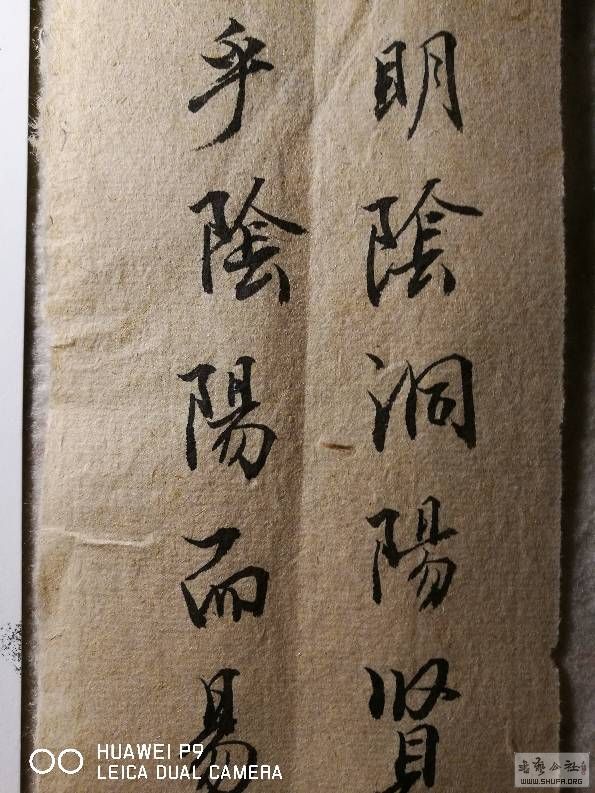 明陰洞陽賢
乎陰陽而易
HUAWEI P9
LEICA DUAL CAMERA
书艺公社
WWW.SHUFA.ORG